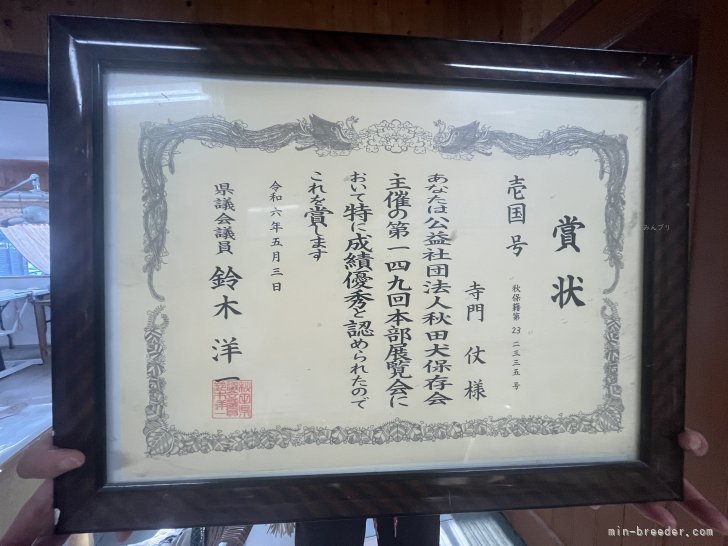 賞状
みんブリ
秋保籍第23二三三五号
壱国号
寺門 仗様
あなたは公益社団法人秋田犬保存会
主催の第一四九回本部展覧会に
おいて特に成績優秀と認められたので
これを賞します
令和六年五月三日
県議会議員 鈴木洋一
min-breeder.com